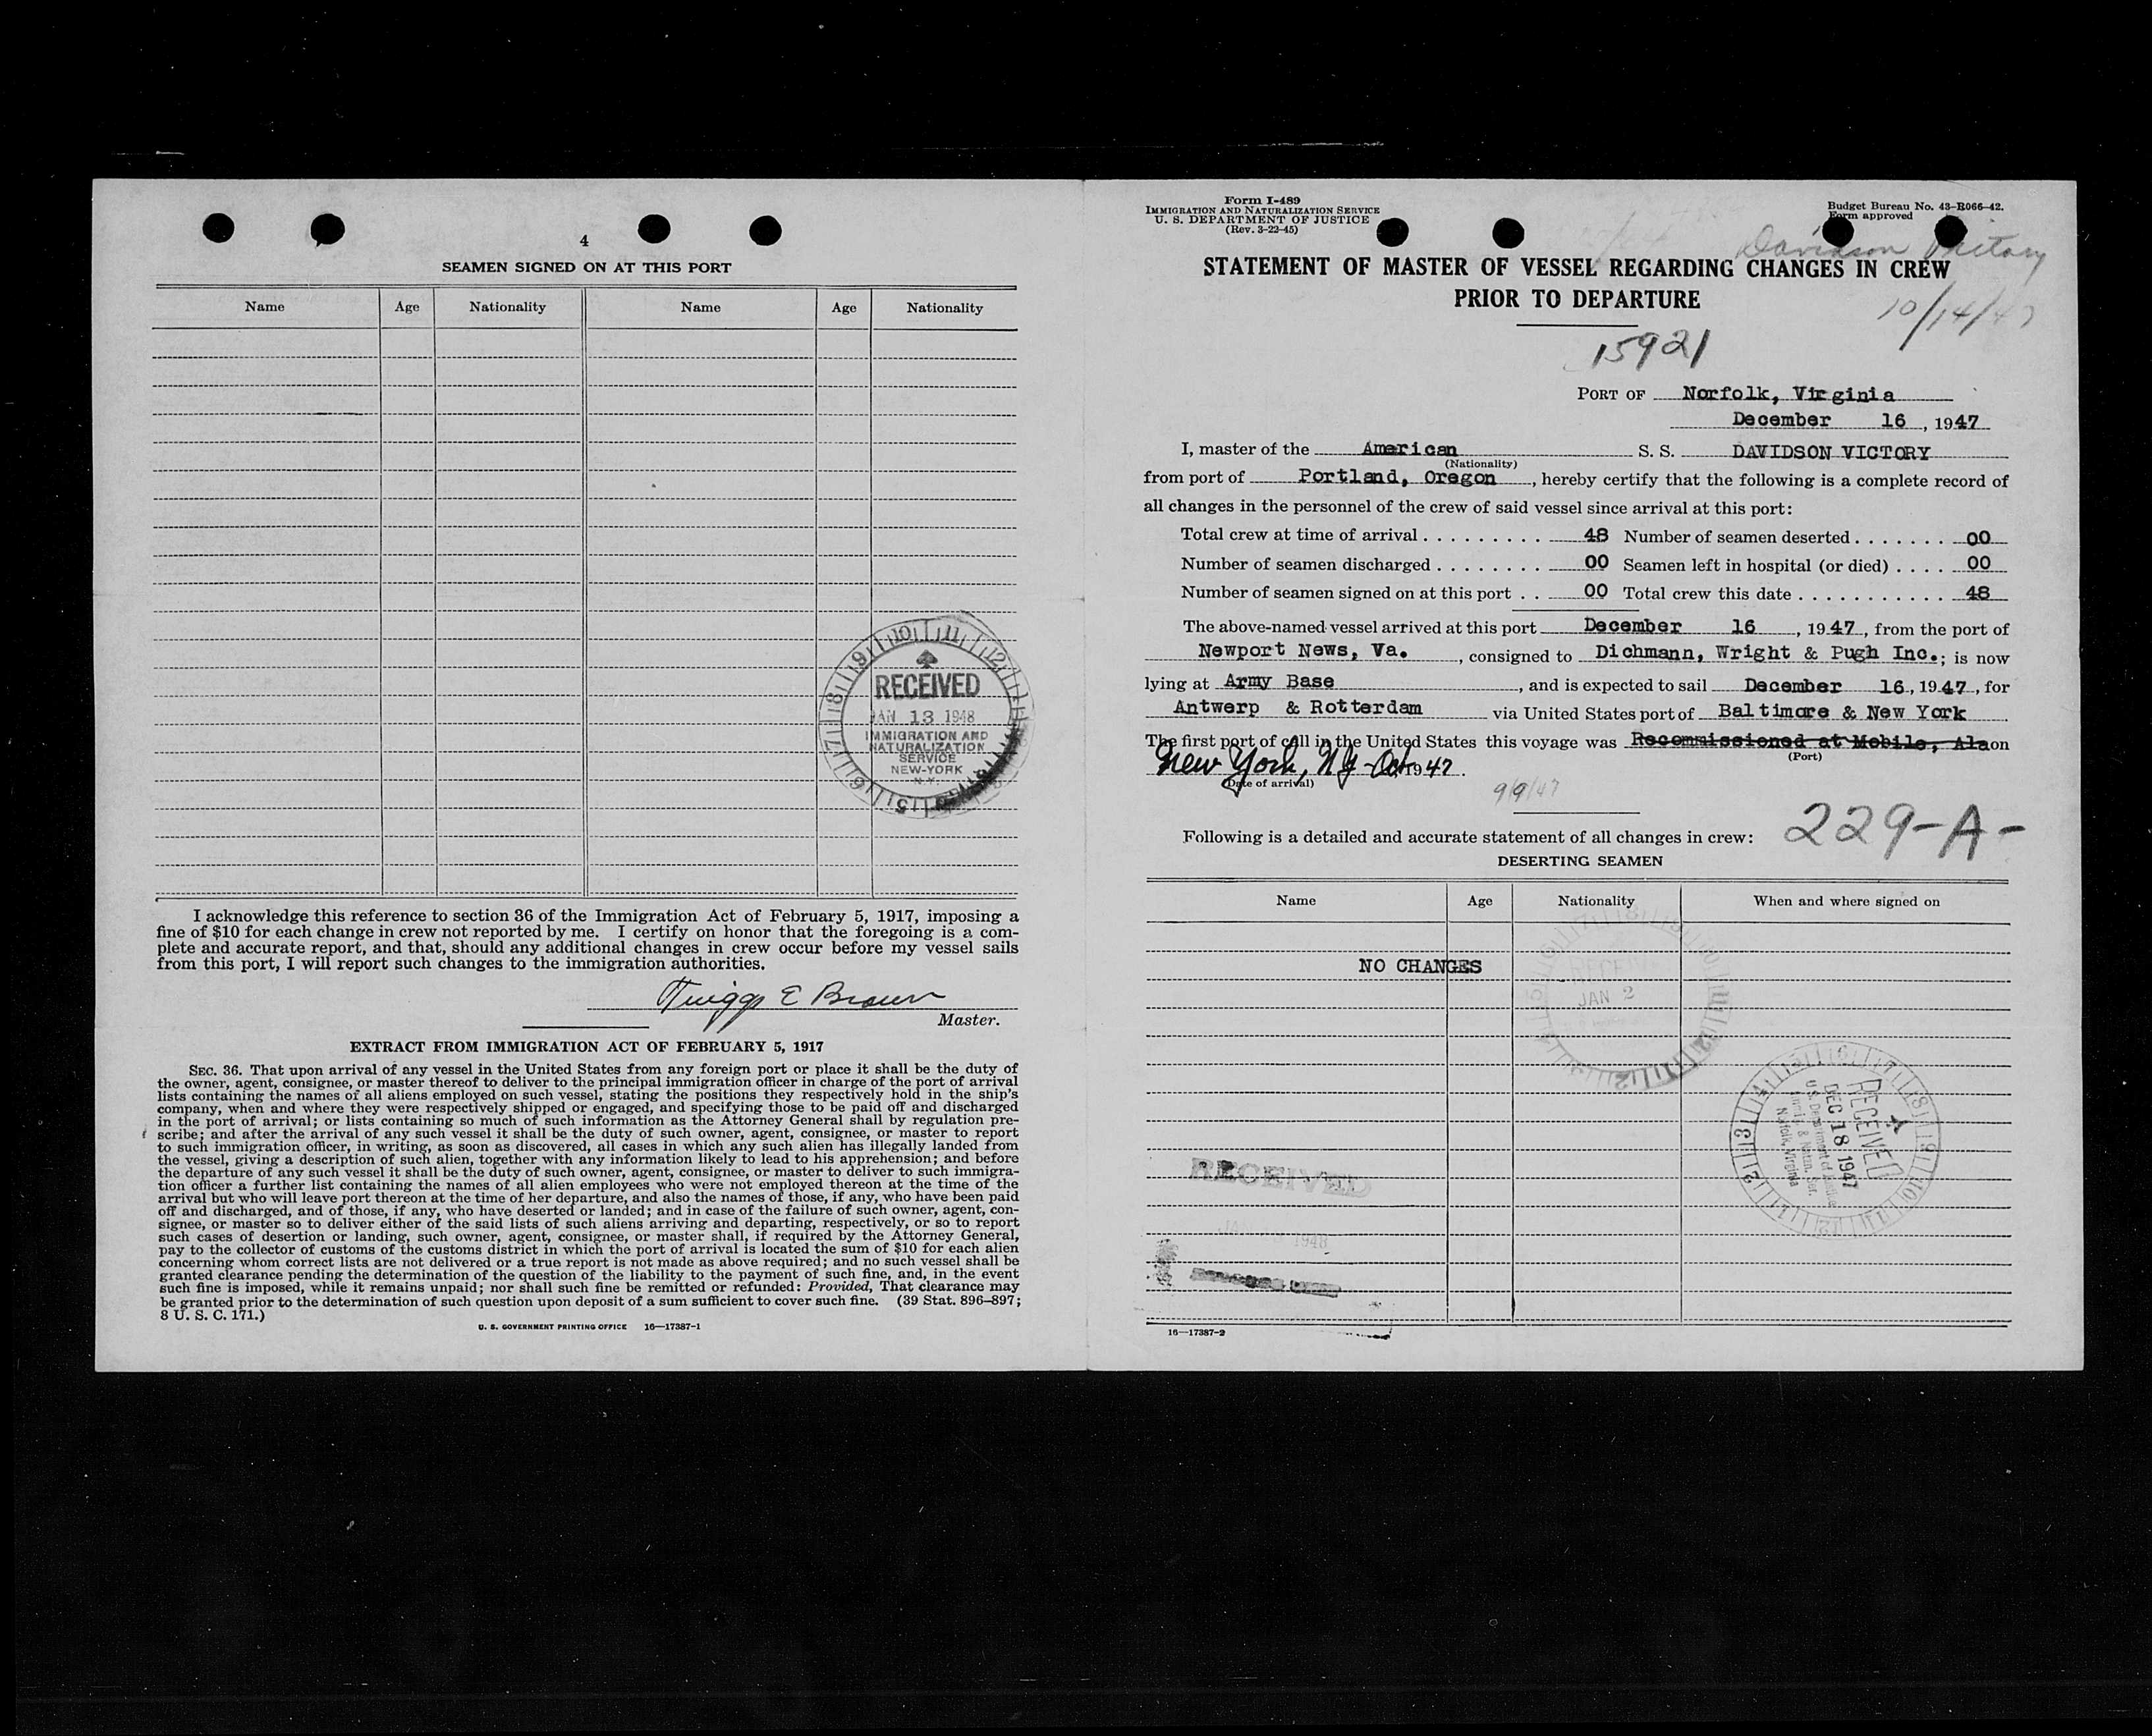 4
SEAMEN SIGNED ON AT THIS PORT
Name Age Nationality Name Age Nationality
RECEIVED
JAN 13 1948
IMMIGRATION AND
NATURALIZATION
SERVICE
NEW-YORK
N.Y.
I acknowledge this reference to section 36 of the Immigration Act of February 5, 1917, imposing a
fine of $10 for each change in crew not reported by me. I certify on honor that the foregoing is a com-
plete and accurate report, and that, should any additional changes in crew occur before my vessel sails
from this port, I will report such changes to the immigration authorities.
E Brown
Master.
EXTRACT FROM IMMIGRATION ACT OF FEBRUARY 5, 1917
SEC. 36. That upon arrival of any vessel in the United States from any foreign port or place it shall be the duty of
the owner, agent, consignee, or master thereof to deliver to the principal immigration officer in charge of the port of arrival
lists containing the names of all aliens employed on such vessel, stating the positions they respectively hold in the ship's
company, when and where they were respectively shipped or engaged, and specifying those to be paid off and discharged
in the port of arrival; or lists containing so much of such information as the Attorney General shall by regulation pre-
scribe; and after the arrival of any such vessel it shall be the duty of such owner, agent, consignee, or master to report
to such immigration officer, in writing, as soon as discovered, all cases in which any such alien has illegally landed from
the vessel, giving a description of such alien, together with any information likely to lead to his apprehension; and before
the departure of any such vessel it shall be the duty of such owner, agent, consignee, or master to deliver to such immigra-
tion officer a further list containing the names of all alien employees who were not employed thereon at the time of the
arrival but who will leave port thereon at the time of her departure, and also the names of those, if any, who have been paid
off and discharged, and of those, if any, who have deserted or landed; and in case of the failure of such owner, agent, con-
signee, or master so to deliver either of the said lists of such aliens arriving and departing, respectively, or so to report
such cases of desertion or landing, such owner, agent, consignee, or master shall, if required by the Attorney General,
pay to the collector of customs of the customs district in which the port of arrival is located the sum of $10 for each alien
concerning whom correct lists are not delivered or a true report is not made as above required; and no such vessel shall be
granted clearance pending the determination of the question of the liability to the payment of such fine, and, in the event
such fine is imposed, while it remains unpaid; nor shall such fine be remitted or refunded: Provided, That clearance may
be granted prior to the determination of such question upon deposit of a sum sufficient to cover such fine. (39 Stat. 896–897;
8 U. S. C. 171.)
U. S. GOVERNMENT PRINTING OFFICE 16—17387-1
Form I-489
IMMIGRATION AND NATURALIZATION SERVICE
U. S. DEPARTMENT OF JUSTICE
(Rev. 3-22-45)
Budget Bureau No. 43-R066-42.
Form approved
Davidson Victory
STATEMENT OF MASTER OF VESSEL REGARDING CHANGES IN CREW
PRIOR TO DEPARTURE
10/14/47
15921
PORT OF Norfolk, Virginia
December 16, 1947
I, master of the American S. S. DAVIDSON VICTORY
(Nationality)
from port of Portland, Oregon, hereby certify that the following is a complete record of
all changes in the personnel of the crew of said vessel since arrival at this port:
Total crew at time of arrival . . . . . . . . . 48 Number of seamen deserted . . . . . . . 00
Number of seamen discharged . . . . . . . . 00 Seamen left in hospital (or died) . . . . 00
Number of seamen signed on at this port . . 00 Total crew this date . . . . . . . . . . . 48
The above-named vessel arrived at this port December 16, 1947, from the port of
Newport News, Va., consigned to Dichmann, Wright & Pugh Inc.; is now
lying at Army Base, and is expected to sail December 16, 1947, for
Antwerp & Rotterdam via United States port of Baltimore & New York
The first port of call in the United States this voyage was Recommissioned at Mobile, Ala on
(Port)
New York, NY - Oct 1947.
(Date of arrival)
9/9/47
Following is a detailed and accurate statement of all changes in crew:
229-A-
DESERTING SEAMEN
Name Age Nationality When and where signed on
NO CHANGES
JAN 2
RECEIVED
DEC 18 1947
U.S. Department of Justice
Immig. & Natzn. Ser.
Norfolk, Virginia
RECEIVED
1948
16—17387-2